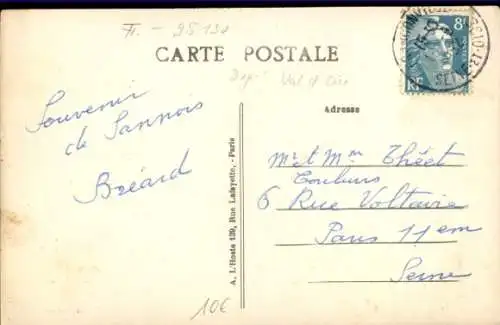 Fr. - 95130
CARTE POSTALE
Val d'Oise
Adresse
Souvenir
de Sannois
Bréard
A. L'Hoste 139, Rue Lafayette, - Paris
Mr et Mme Théet
6 Rue Voltaire
Paris 11 em
Seine
10€
8F
RF
SEINE